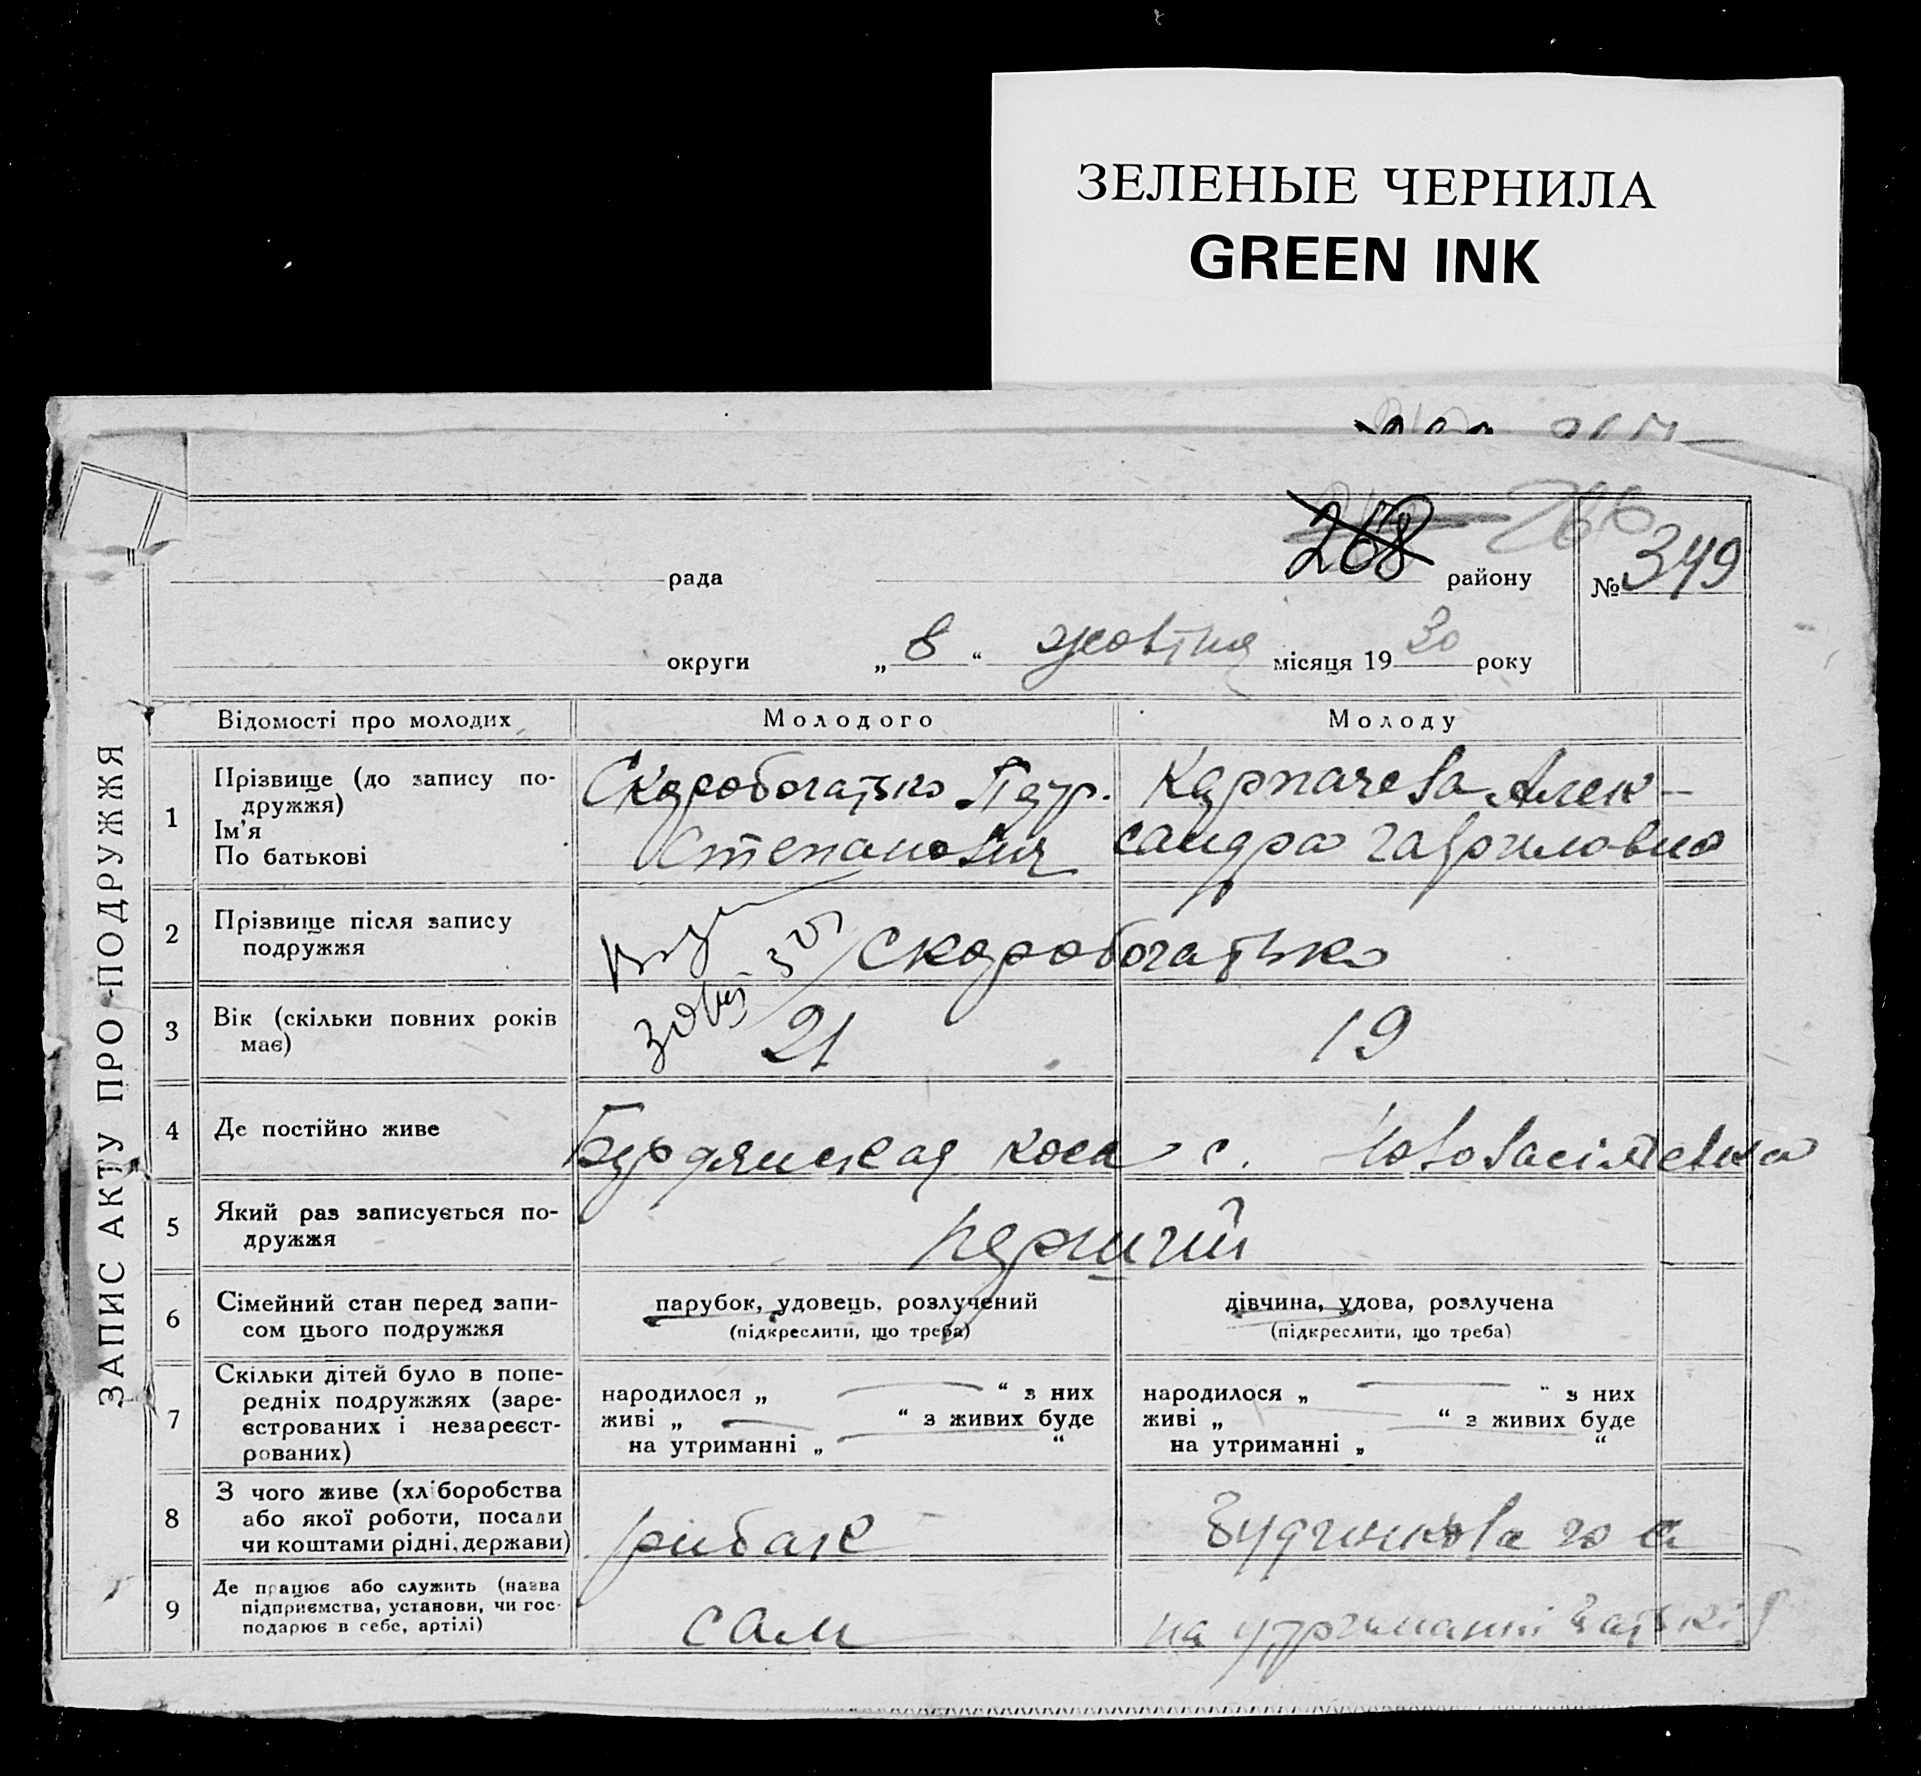 ЗЕЛЕНЫЕ ЧЕРНИЛА
GREEN INK
268 266
рада району № 349
округи „ 8 “ жовтня місяця 19 30 року
ЗАПИС АКТУ ПРО ПОДРУЖЖЯ
Відомості про молодих Молодого Молоду
1 Прізвище (до запису по-
дружжя)
Ім'я
По батькові
Скоробогатько Петр.
Степанович
Карпачева Алек-
сандра Гавриловна
2 Прізвище після запису
подружжя
Скоробогатько
3 Вік (скільки повних років
має)
21 19
4 Де постійно живе
Бердянская коса с. Нововасілевка
5 Який раз записується по-
дружжя
перший
6 Сімейний стан перед запи-
сом цього подружжя
парубок, удовець, розлучений
(підкреслити, що треба)
дівчина, удова, розлучена
(підкреслити, що треба)
7 Скільки дітей було в попе-
редніх подружжях (заре-
єстрованих і незареєст-
рованих)
народилося „ — “ з них
живі „ — “ з живих буде
на утриманні „ — “
народилося „ — “ з них
живі „ — “ з живих буде
на утриманні „ “
8 З чого живе (хліборобства
або якої роботи, посади
чи коштами рідні, держави)
рибак
9 Де працює або служить (назва
підприємства, установи, чи гос-
подарює в себе, артілі)
сам
на утриманні батьків